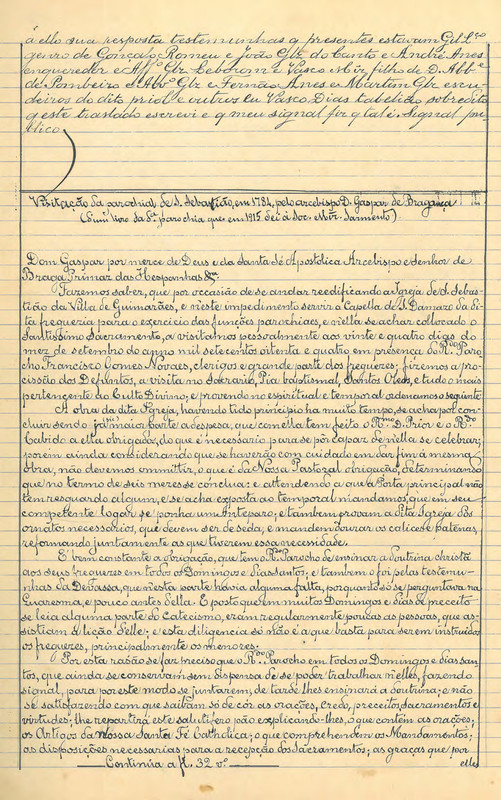 á ello sua resposta testemunhas q presentes estavam Gil Lço
genro de Gonçalo Romeu e João Glz do Canto e André Anes
enqueredor e Affº Glz Leborom e Vasco Miz filho de D. Abbe
de Pombeiro e Abbº Glz e Fernão Anes e Martim Glz escu-
deiros do dito priol e outros eu Vasco Dias tabelião sobredito
q este traslado escrevi e q meu signal fiz q tal é. Signal pu-
blico
Visitação da parochial de S. Sebastião, em 1784, pelo arcebispo D. Gaspar de Bragança
(Em livro da Sª parochia que em 1915 dei á Soc. Mar. Sarmento)
Dom Gaspar por merce de Deus e da Santa Sé Apostolica Arcebispo e Senhor de
Braga Primaz das Hespanhas &ª
Fazemos saber, que por occasião de se andar reedificando a Igreja de S. Sebas-
tião da Villa de Guimarães, e neste impedimento servir a Capella de S. Damazo da di-
ta freguesia para o exercicio das funções parochiaes, e nella se achar collocado o
Santissimo Sacramento, a visitamos pessoalmente aos vinte e quatro dias do
mez de setembro do anno mil setecentos oitenta e quatro em presença do Rdo Paro
cho Francisco Gomes Novaes, clerigos e grande parte dos freguezes; fizemos a pro-
cissão dos Defuntos, a visita no Sacrario, Pia baptismal, Santos Oleos, e tudo o mais
pertencente ao Culto Divino; e provendo no espiritual e temporal ordenamos o seguinte
A obra da dita Igreja, havendo tido principio ha muito tempo, se acha por con-
cluir sendo já maior parte da despesa, que com ella tem feito o Rmo D. Prior e o Rmo
Cabido a ella obrigados, do que é necessario para se pôr capaz de nella se celebrar;
porem ainda considerando que se haverão com cuidado em dar fim á mesma
obra, não devemos ommittir, o que é da Nossa Pastoral obrigação, determinando
que no termo de seis mezes se conclua: e attendendo a que a Porta principal não
tem resguardo algum, e se acha exposta ao temporal mandamos, que em seu
competente logar se ponha um Antparo; e tambem provam a dita Igreja dos
ornatos necessarios, que devem ser de sêda, e mandem dourar os calices e patenas,
reformando juntamente as que tiverem essa necessidade.
É bem constante a obrigação, que tem o Rdo Parocho de ensinar a doutrina christã
aos seus freguezes em todos os Domingos e dias santos, e tambem o foi pelas testemu-
nhas da Devassa, que nesta parte havia alguma falta, porquanto só se perguntava na
Quaresma, e pouco antes d'ella. E posto que em muitos Domingos e dias de preceito
se leia alguma parte do Catecismo, eram regularmente poucas as pessoas, que as-
sistiam á lição d'elle; e esta diligencia só não é a que basta para serem instruidos
os freguezes, principalmente os menores.
Por esta razão se faz preciso que o Rdo Parocho em todos os Domingos e dias san-
tos, que ainda se conservam sem dispensa de se poder trabalhar n'elles, fazendo
signal, para por este modo se juntarem, de tarde lhes ensinará a doutrina; e não
se satisfazendo com que saibam só de cór as orações, Credo, preceitos, Sacramentos e
virtudes, lhe repartirá este salutifero pão explicando-lhes, o que contêm as orações;
os Artigos da nossa Santa Fé Catholica; o que comprehendem os Mandamentos;
as disposições necessarias para a recepção dos Sacramentos; as graças que por
Continúa a fl. 32 vº elles